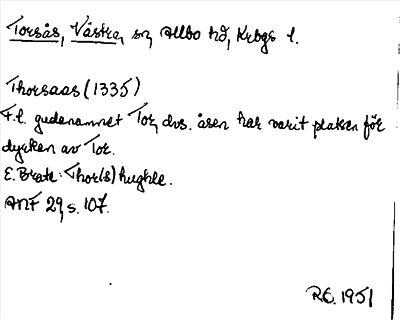 Torsås, Västra, sn, Allbo hd, Krbgs l.
Thorsaas (1335)
T. l. gudanamnet Tor, dvs. åsen har varit platsen för
dyrkan av Tor.
E. Brate: Thor(s)hughle.
ANF 29, s. 107.
R.E. 1951